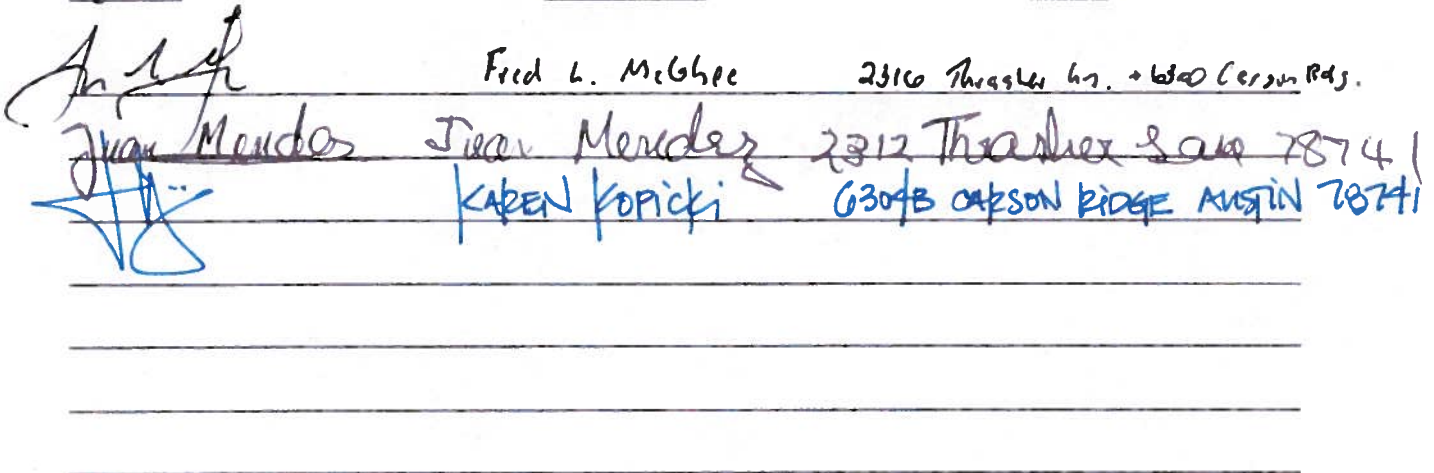 Fred L. McGhee 2316 Thrasher Ln. + 6300 Carson Rdg.
Juan Mendez Juan Mendez 2312 Thrasher Lane 78741
KAREN KOPICKI 6304B CARSON RIDGE AUSTIN 78741